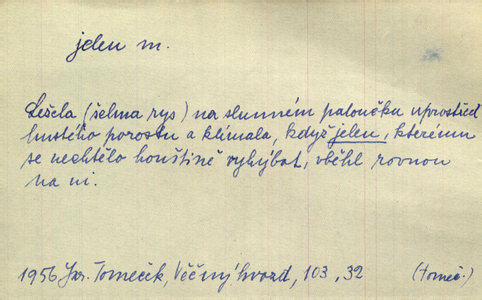 jelen m.
Ležela (šelma rys) na slunném paloučku uprostřed
hustého porostu a klímala, když jelen, kterému
se nechtělo houštině vyhýbat, vběhl rovnou
na ni.
1956 Jar. Tomeček, Věčný hvozd, 103, 32 (Tomeč.)